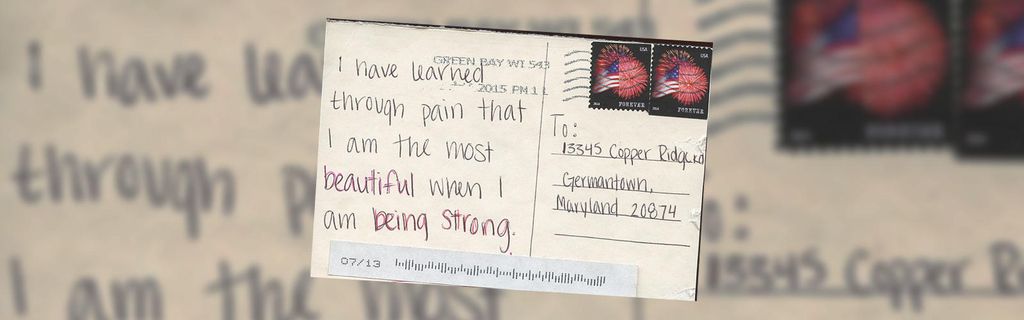 GREEN BAY WI 543
2015 PM 1 L
I have learned
through pain that
I am the most
beautiful when I
am being strong.
USA
FOREVER
USA
FOREVER
To:
13345 Copper Ridge Rd
Germantown,
Maryland 20874
07/13